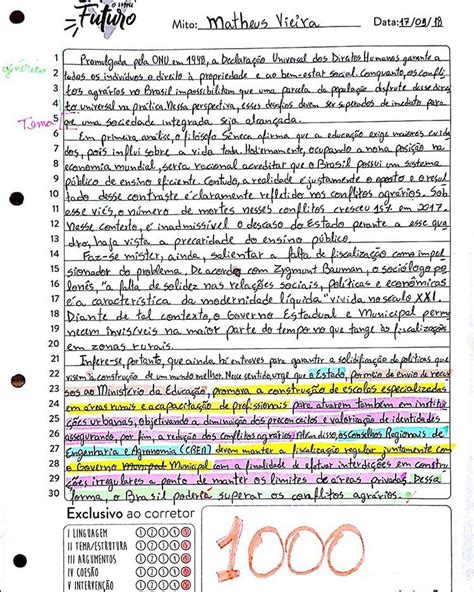 o meu
Futuro
Mito: Matheus Vieira Data: 17/09/18
1 Promulgada pela ONU em 1948, a Declaração Universal dos Direitos Humanos garante a
2 todos os indivíduos o direito à propriedade e ao bem-estar social. Conquanto, os confli
3 tos agrários no Brasil impossibilitam que uma parcela da população desfrute desse direi
4 to universal na prática. Nessa perspectiva, esses desafios devem ser superados de imediato para
Tema
5 que uma sociedade integrada seja alcançada.
6 Em primeira análise, o filósofo Sêneca afirma que a educação exige maiores cuida
7 dos, pois influi sobre a vida toda. Hodiernamente, ocupando a nona posição na
8 economia mundial, seria racional acreditar que o Brasil possui um sistema
9 público de ensino eficiente. Contudo, a realidade é justamente o oposto e o resul
10 tado desse contraste é claramente refletido nos conflitos agrários. Sob
11 esse viés, o número de mortes nesses conflitos cresceu 15% em 2017.
12 Nesse contexto, é inadmissível o descaso do Estado perante a esse qua
13 dro, haja vista a precaridade do ensino público.
14 Faz-se mister, ainda, salientar a falta de fiscalização como impul
15 sionador do problema. De acordo com Zygmunt Bauman, o sociólogo po
16 lonês, "a falta de solidez nas relações sociais, políticas e econômicas
17 é a característica da modernidade líquida" vivida no século XXI.
18 Diante de tal contexto, o Governo Estadual e Municipal perma
19 necem invisíveis na maior parte do tempo no que tange às fiscalizações
20 em zonas rurais.
21 Infere-se, portanto, que ainda há entraves para garantir a solidificação de políticas que
22 visem à construção de um mundo melhor. Nesse sentido, urge que o Estado, por meio de envio de recur
23 sos ao Ministério da Educação, promova a construção de escolas especializadas
24 em áreas rurais e a capacitação de profissionais para atuarem também em institui
25 ções urbanas, objetivando a diminuição dos preconceitos e valorização de identidades
26 assegurando, por fim, a redução dos conflitos agrários. Além disso, os Conselhos Regionais de
27 Engenharia e Agronomia (CREA) devem manter a fiscalização regular juntamente com
28 o Governo Municipal com a finalidade de efetuar interdições em constru
29 ções irregulares a ponto de manter os limites de áreas privadas. Dessa
30 forma, o Brasil poderia superar os conflitos agrários.
Exclusivo ao corretor
I LINGUAGEM
II TEMA/ESTRUTURA
III ARGUMENTOS
IV COESÃO
V INTERVENÇÃO
1000